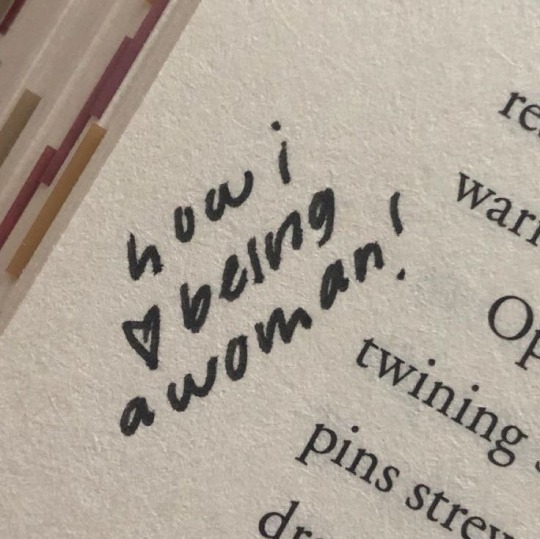 how i
♡ being
a woman!
re
warm
Op
twining
pins strew
dr